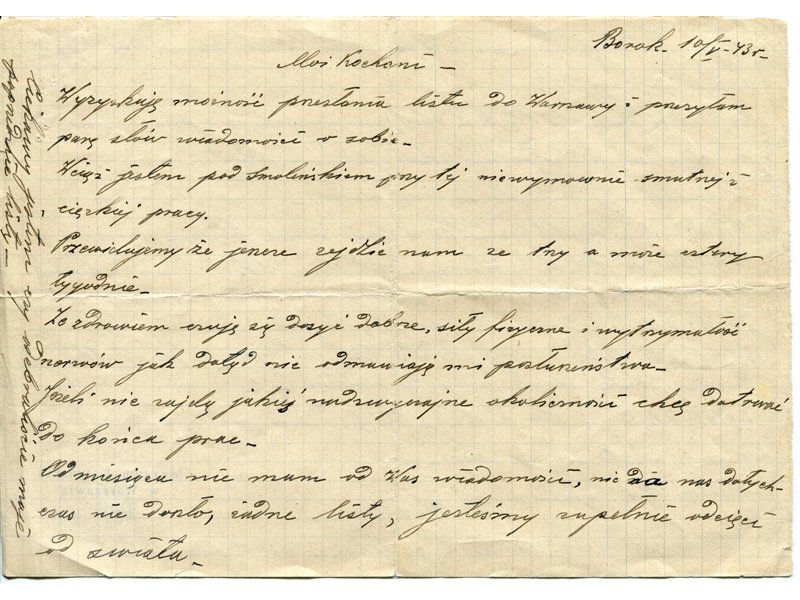 Borok 10/V-43 r-
Moi Kochani -
Wyzyskuję możność przesłania listu do Warszawy i przesyłam
parę słów wiadomości o sobie-
Wciąż jestem pod Smoleńskiem przy tej niewymownie smutnej i
ciężkiej pracy.
Przewidujemy że jeszcze zejdzie nam ze trzy a może cztery
tygodnie-
Ze zdrowiem czuję się dosyć dobrze, siły fizyczne i wytrzymałość
nerwów jak dotąd nie odmawiają mi posłuszeństwa-
Jeżeli nie zajdą jakieś nadzwyczajne okoliczności chcę dotrwać
do końca prac-
Od miesiąca nie mam od Was wiadomości, nie do nas dotych-
czas nie doszło, żadne listy, jesteśmy zupełnie odcięci
od świata-
Ciekawy jestem czy odebraliście moje
poprzednie listy-